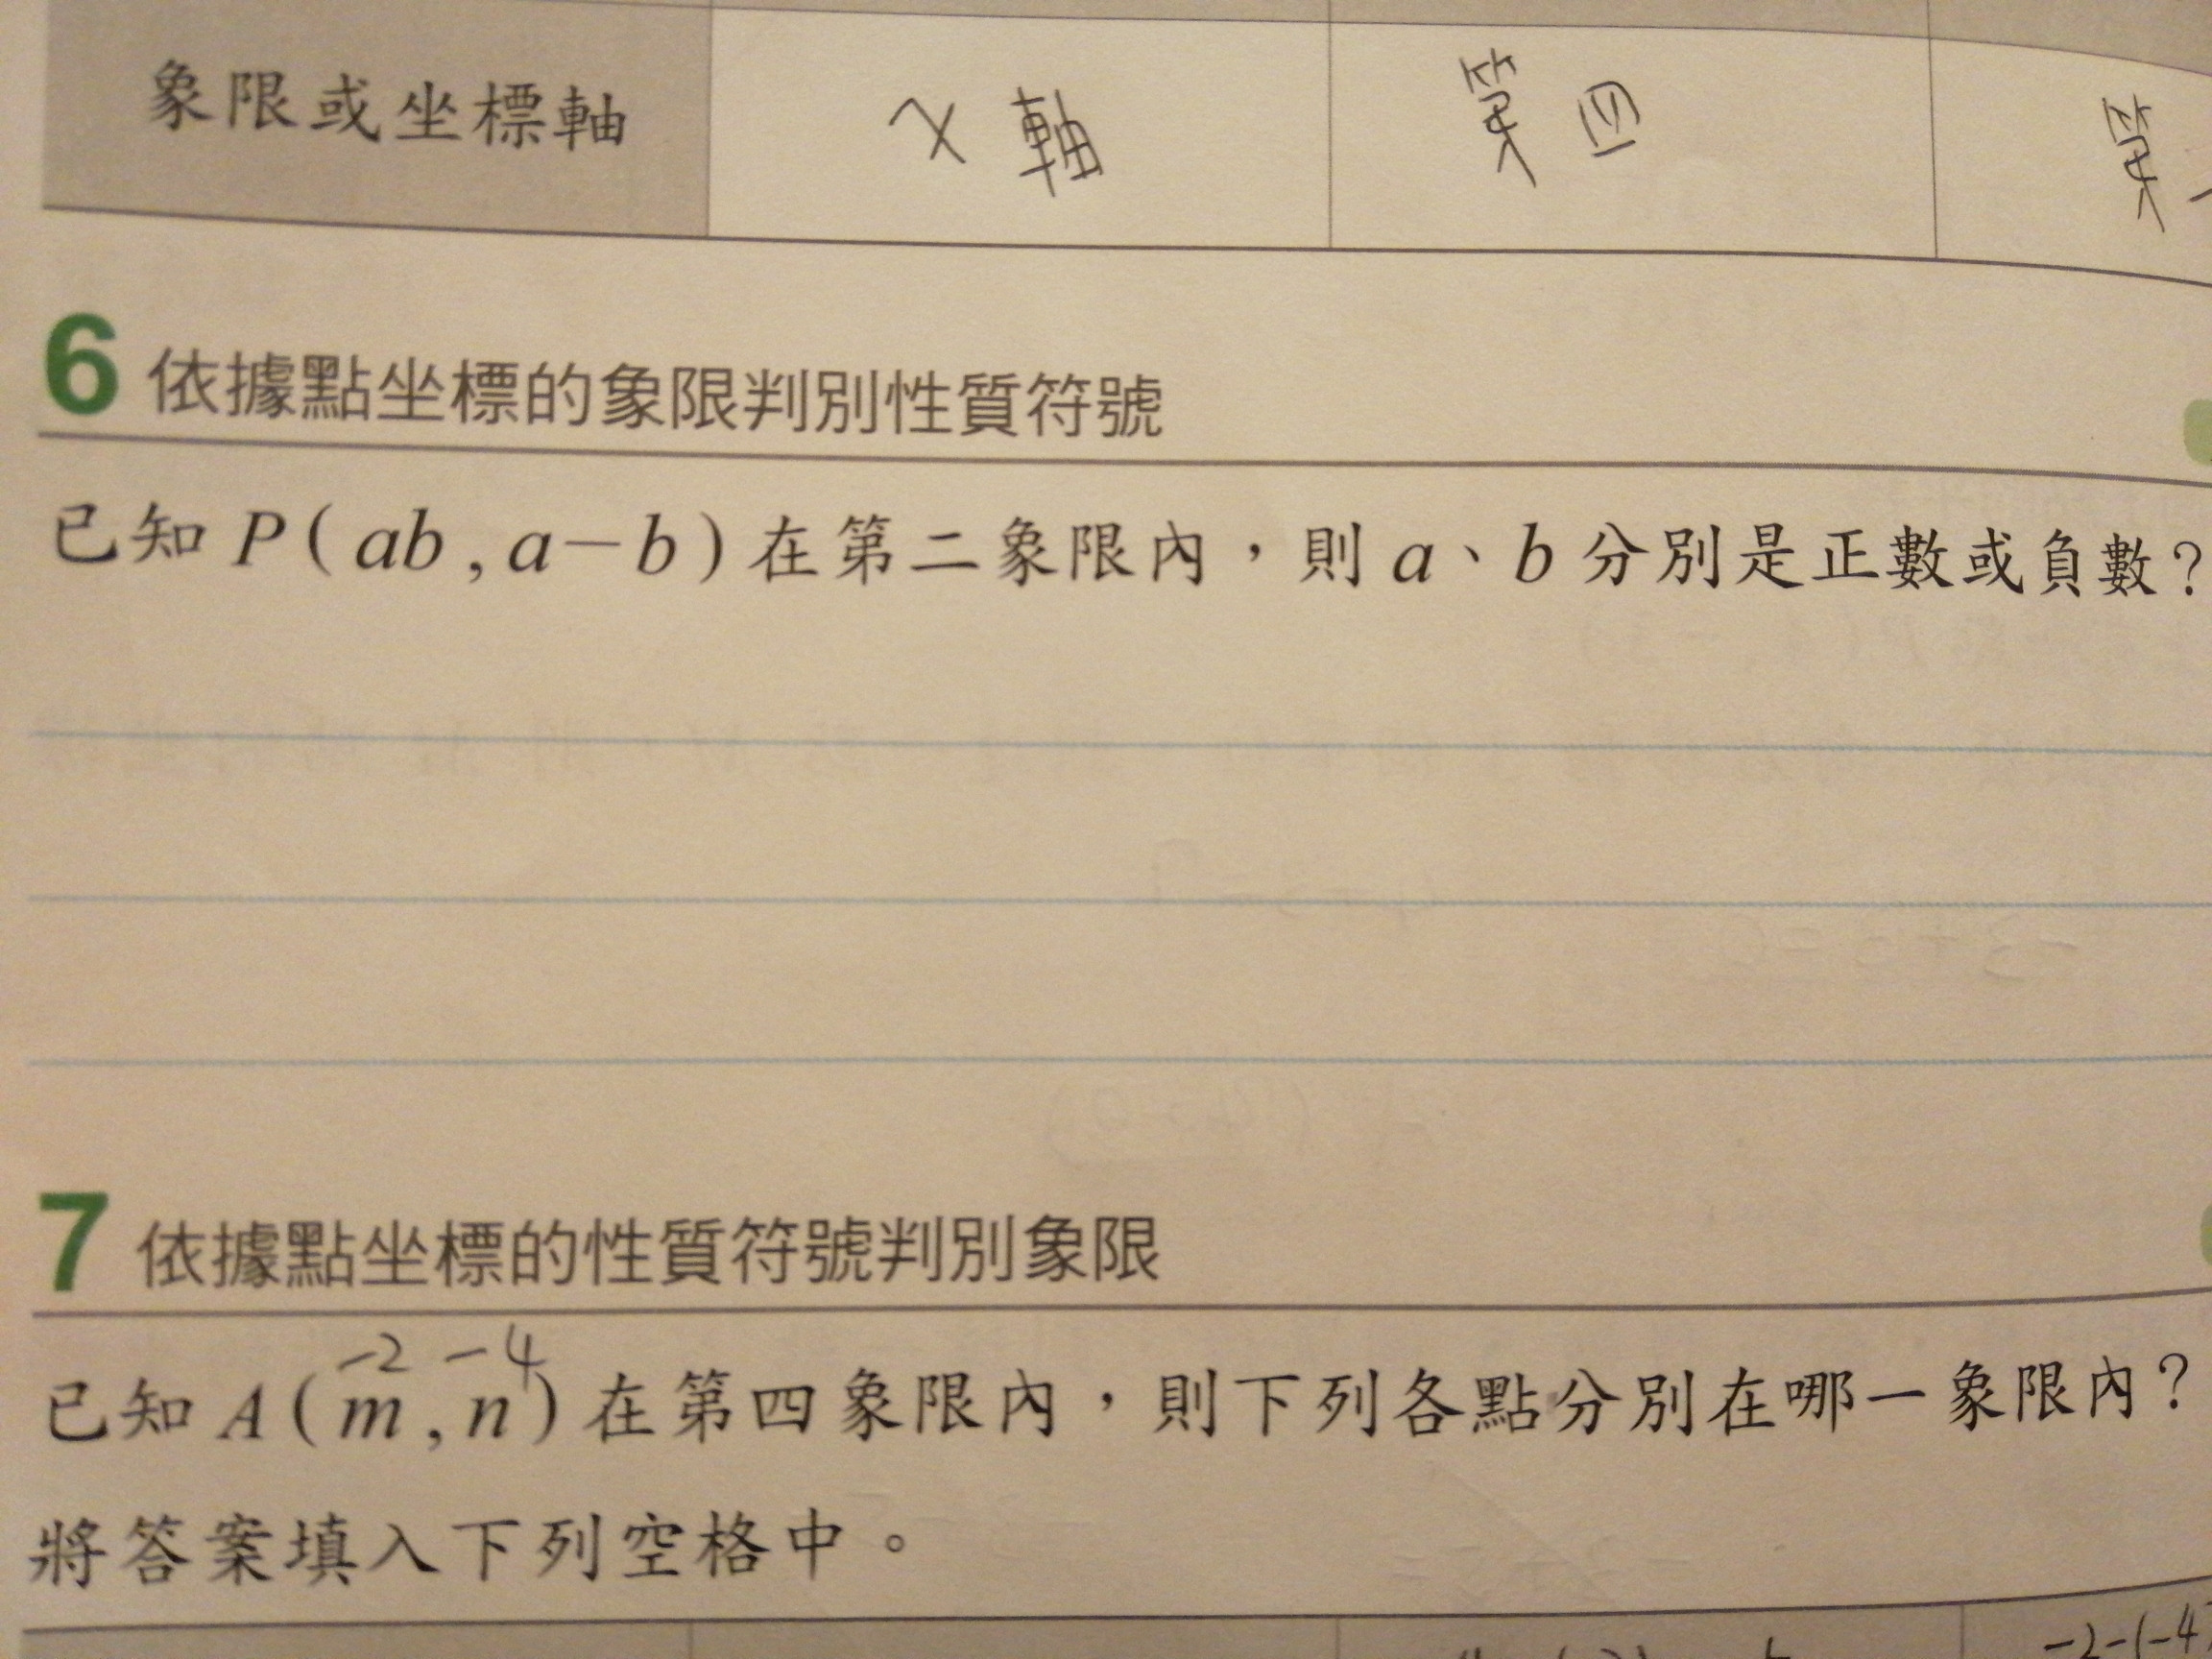 象限或坐標軸 x軸 第四 第
6 依據點坐標的象限判別性質符號
已知 P(ab,a－b)在第二象限內，則 a、b 分別是正數或負數？
7 依據點坐標的性質符號判別象限
-2 -4
已知 A(m,n)在第四象限內，則下列各點分別在哪一象限內？
將答案填入下列空格中。
-2-(-4)